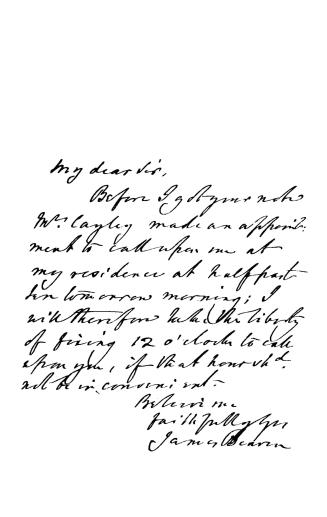 My dear Sir,
Before I got your note
Mrs. Cayley made an appoint-
ment to call upon me at
my residence at half past
ten tomorrow morning; I
will therefore take the liberty
of fixing 12 o'clock to call
upon you, if that hour shd.
not be inconvenient.
Believe me
faithfully yrs
James Beaven